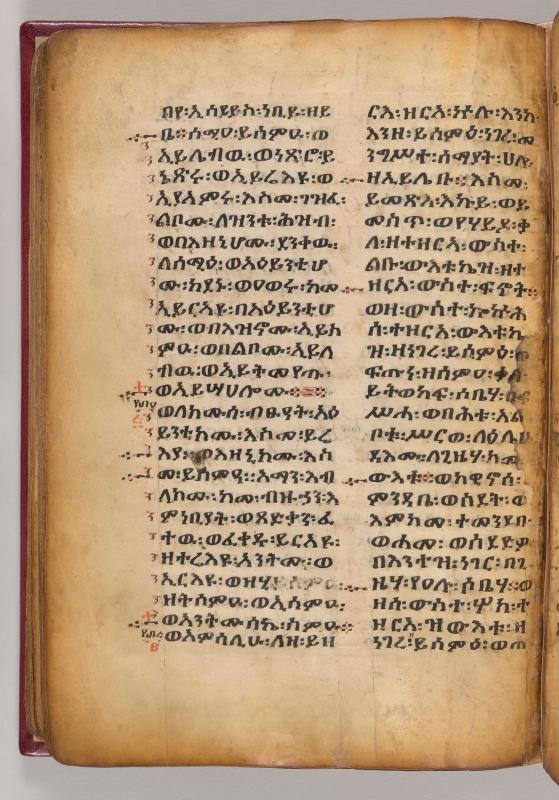 በየ፡ኢሳይያስ፡ነቢይ፡ዘይ
ቤ፡፡ሰሚዐ፡ይሰምዑ፡ወ
ኢይሌብዉ፡ወነጽሮ፡ይ
ኔጽሩ፡ወኢይሬእዩ፡ወ
ኢያአምሩ፡እስመ፡ገዝፈ፡
ልቦሙ፡ለዝንቱ፡ሕዝብ፡
ወበእዘኒሆሙ፡ደንቀዉ፡
ለሰሚዕ፡ወአዕይንቲሆ
ሙ፡ከደኑ፡ወዐወሩ፡ከመ
ኢይርአዩ፡በአዕይንቲሆ
ሙ፡ወበእዝኖሙ፡ኢይስ
ምዑ፡ወበልቦሙ፡ኢይለ
ብዉ፡ወኢይትመየጡ፡
ወኢይሣሀሎሙ፡፡
ወለክሙሰ፡ብፁዓት፡አዕ
ይንቲክሙ፡እስመ፡ይሬ
እያ፡ወእዘኒክሙ፡እስ
መ፡ይሰምዓ፡፡አማን፡እብ
ለክሙ፡ከመ፡ብዙኃን፡እ
ምነቢያት፡ወጻድቃን፡ፈ
ተዉ፡ወፈቀዱ፡ይርአዩ፡
ዘትሬእዩ፡አንትሙ፡ወ
ኢርእዩ፡ወዘሂ
ዘትሰምዑ፡ወኢሰምዑ፡
ወአንትሙሰኬ፡ስምዑ፡፡
ወአምሳሊሁ፡ለዘ፡ይዘ
ርእ፡ዘርእ፡ኵሉ፡እንከ
እንዘ፡ይሰምዕ፡ነገረ፡መ
ንግሥተ፡ሰማያት፡ሀሉ
ዘኢይሌቡ፡፡እስመ፡
ይመጽእ፡እኩይ፡ወይ
መስጥ፡ወየሃይድ፡ቃ
ለ፡ዘተዘርአ፡ውስተ፡
ልቡ፡ውእቱኬ፡ዝ፡ዘተ
ዘርአ፡ውስተ፡ፍኖት፡፡
ወዘ፡ውስተ፡ኰኵሕ
ሰ፡ተዘርአ፡ውእቱኬ
ዝ፡ዘነገረ፡ይሰምዕ፡ወ
ፍጡነ፡ዘሰምዐ፡ቃለ
ይትወከፍ፡ሶቤሃ፡
ሥሐ፡ወበሕቱ፡አል
ቦቱ፡ሥርወ፡ለዕሌሁ
ዳእሙ፡ለጊዜሃ፡ከመ
ውእቱ፡፡ወከዊኖሰ፡
ምንዳቤ፡ወስደት፡
እምከመ፡ተመንደበ፡
ወሐመ፡ወሰደድዎ
በእንተዝ፡ነገር፡በጊ
ዜሃ፡የዐሉ፡ሶቤሃ፡፡ወ
ዘሰ፡ውስተ፡ሦክ፡ተ
ዘርአ፡ዝውእቱ፡ዘ
ነገረ፡ይሰምዕ፡